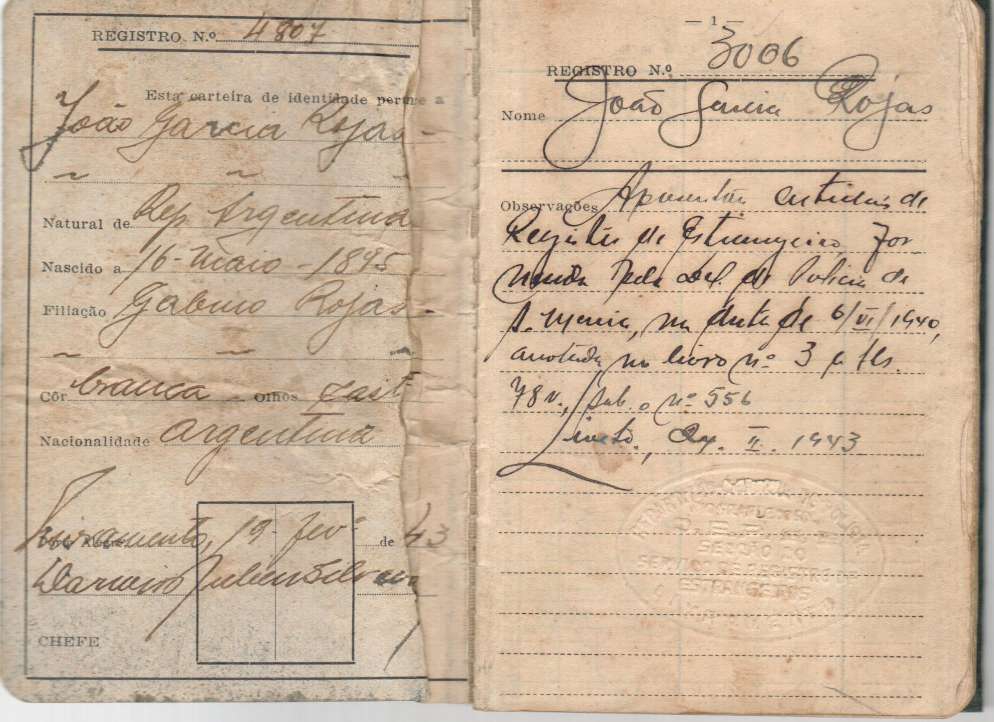 REGISTRO N.º 4807
Esta carteira de identidade perten a
João Garcia Rojas -
~ ~ ~
Natural de Rep. Argentina
Nascido a 16 - maio - 1895
Filiação Gabino Rojas -
~ ~ ~
Côr branca - Olhos cast
Nacionalidade argentina
Livramento, 19 fevº de 43
Porto Alegre,
CHEFE
— 1 —
REGISTRO N.º 3006
Nome João Garcia Rojas
Observações Apresentou certidão de
Registro de Estrangeiro, for
necida pela Del. de Policia de
S. Maria, na data de 6/VI/1940,
anotada no livro nº 3 a fls.
78 v., sub. o nº 556
Livrto., II. 1943
SECÇÃO DO
SERVIÇO DE REGISTRO DE
ESTRANGEIROS